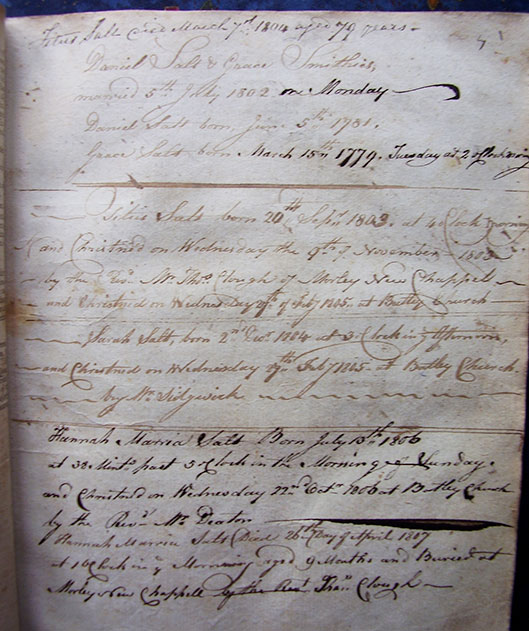 Titus Salt died March 7th 1804 aged 79 years -
Daniel Salt & Grace Smithies,
married 5th July 1802 on Monday
Daniel Salt born, June 5th 1781.
Grace Salt born March 15th 1779. Tuesday at 2 oClock
Titus Salt born 20th Sepr 1803. at 4 oClock morning
and Christned on Wednesday the 9th of November - 1803
by the Revd Mr Thos Clough of Morley New Chappel
and Christned on Wednesday of Feby 1805 - at Batley Church
Sarah Salt, born 2nd Decr 1804 at 3 oClock in Afternoon,
and Christned on Wednesday Feby 1805 - at Batley Church.
by Mr Sidgwick
Hannah Marria Salt Born July 15th 1806
at 32 Minits past 5 oClock in the Morning Sunday.
and Christned on Wednesday 22nd Octr 1806 at Batley Church
by the Revd Mr Deaton
Hannah Marria Salt Died 26th Day of April 1807
at 1 oClock in ye Morning aged 9 Months and Buried at
Morley New Chappell by the Revd Clough